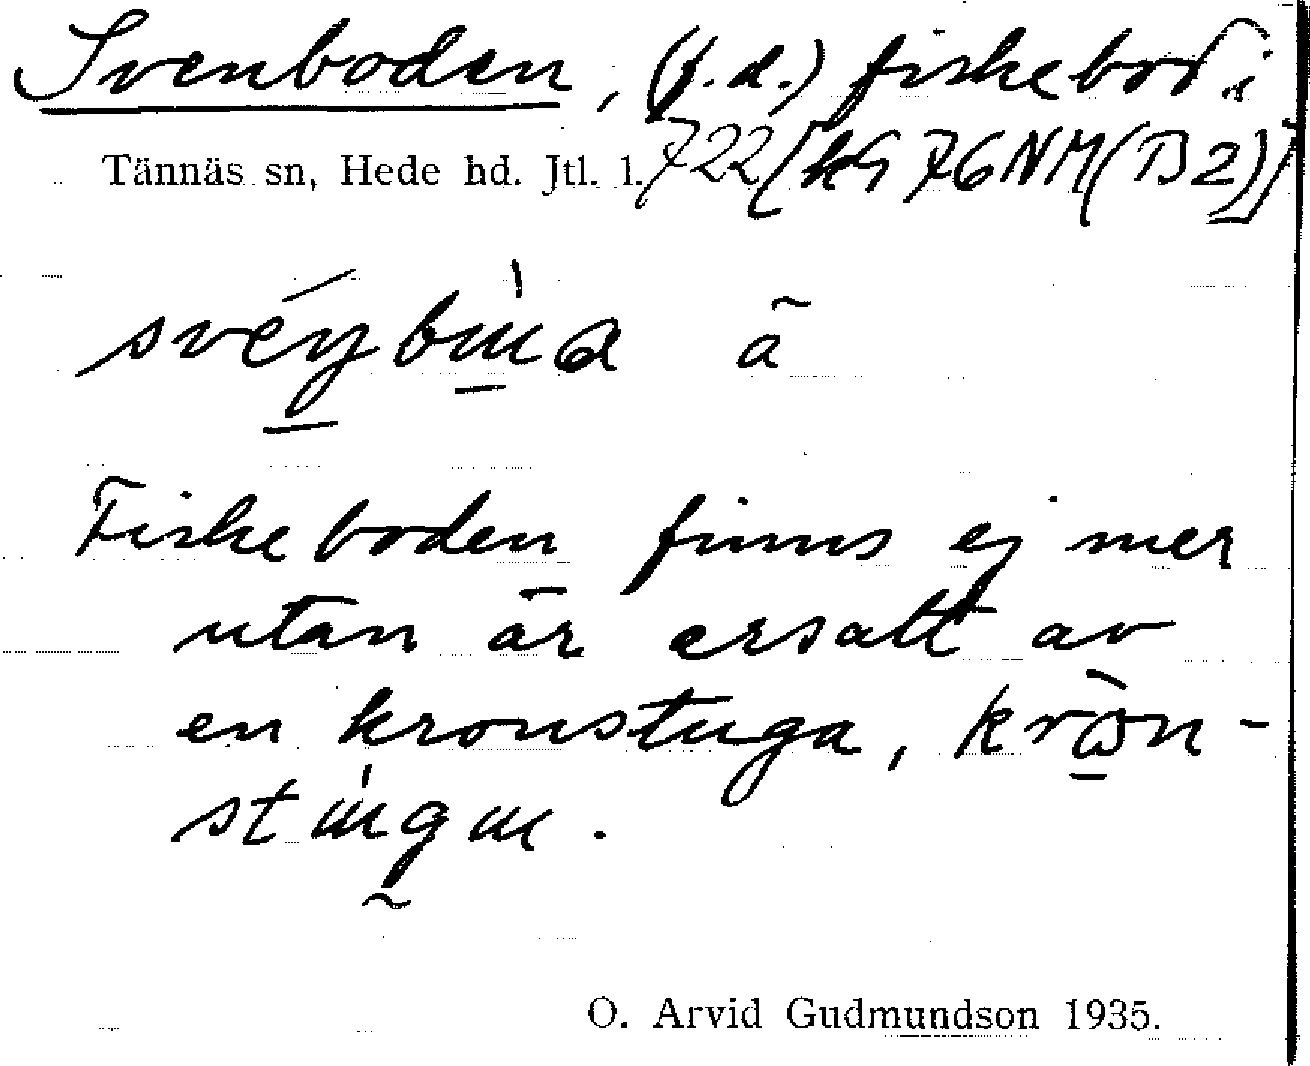 Svenboden, (f.d.) fiskebod i
Tännäs sn, Hede hd. Jtl. l. 722 [kG 76NM(B2)]
ā
Fiskeboden finns ej mer
utan är ersatt av
en kronstuga, 
O. Arvid Gudmundson 1935.